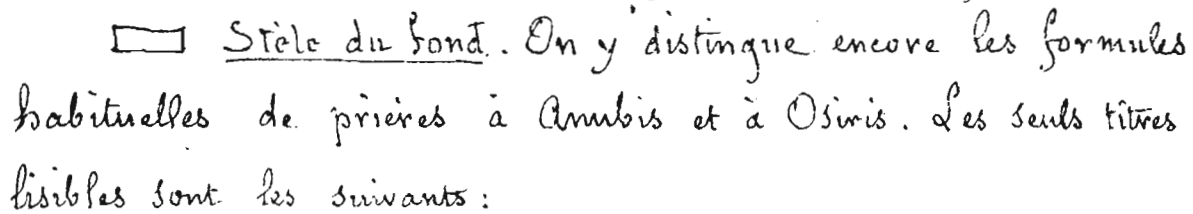 Stèle du fond. On y distingue encore les formules
habituelles de prières à Anubis et à Osiris. Les seuls titres
lisibles sont les suivants :